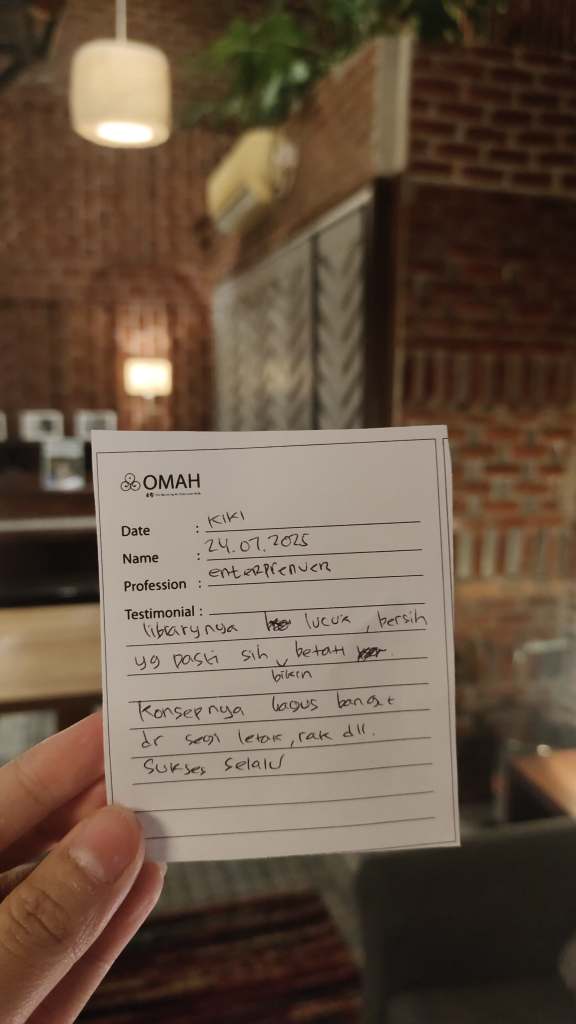 OMAH
Date : KIKI
Name : 24.07.2025
Profession : enterprenuer
Testimonial :
librarynya lucuk, bersih
yg pasti sih bikin betah
Konsepnya bagus banget
dr segi letak, rak dll.
Sukses selalu